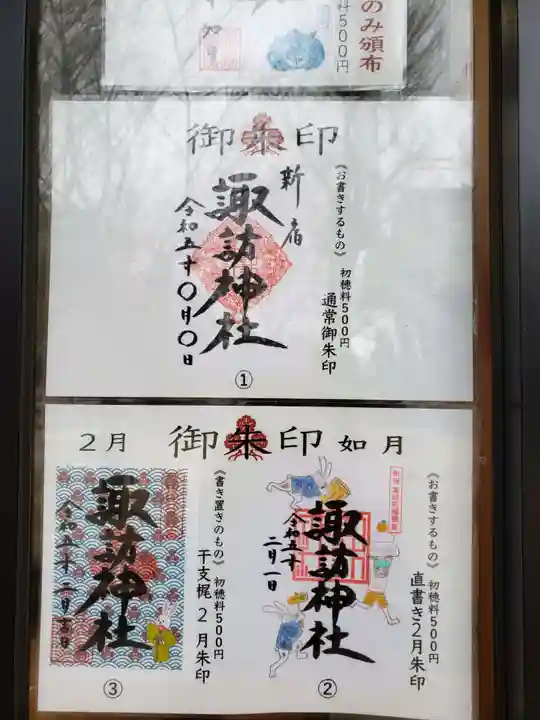 のみ頒布
料500円
御朱印
《お書きするもの》 初穂料500円
通常御朱印
新宿
諏訪神社
令和五年〇月〇日
①
2月 御朱印 如月
《お書きするもの》 初穂料500円
直書き2月朱印
諏訪神社
令和五年
二月一日
②
《書き置きのもの》 初穂料500円
干支梶 2月朱印
諏訪神社
令和五年 二月吉日
③